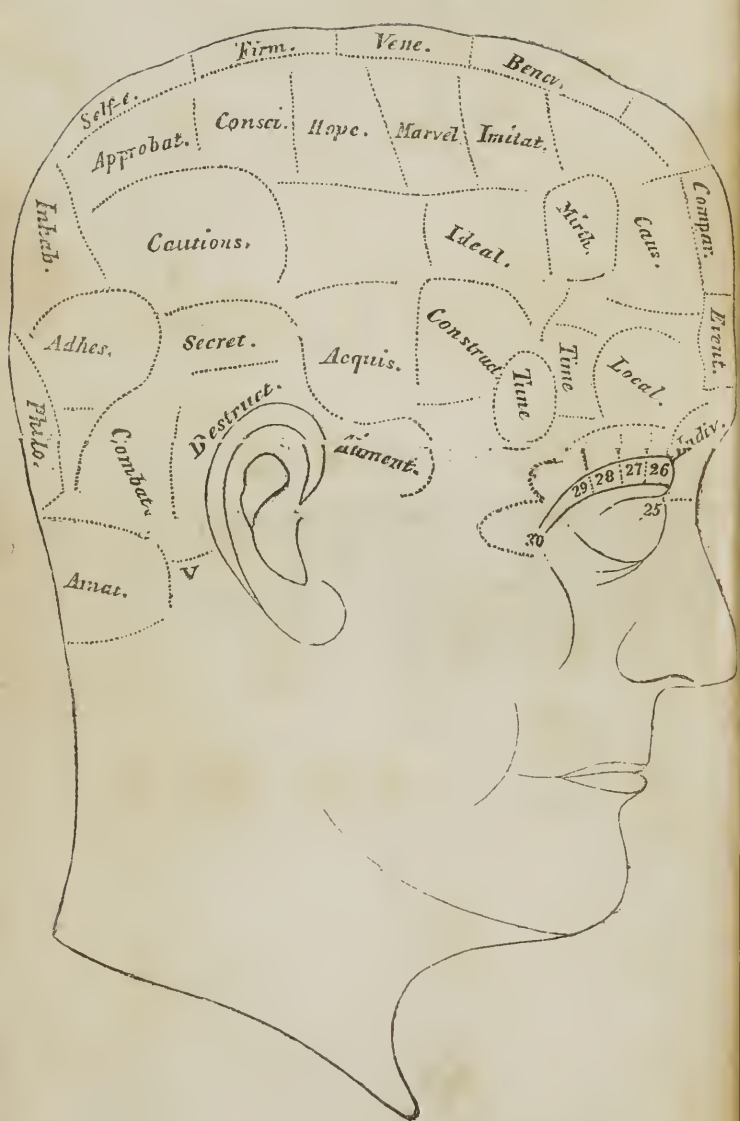 Firm.
Vene.
Benev.
Self-e.
Approbat.
Consci.
Hope.
Marvel
Imitat.
Inhab.
Cautious.
Ideal.
Mirth.
Caus.
Compar.
Adhes.
Secret.
Acquis.
Construct
Tune
Time
Local.
Event.
Philo.
Combat.
Destruct.
Aliment.
Indiv.
30
29
28
27
26
25
Amat.
V